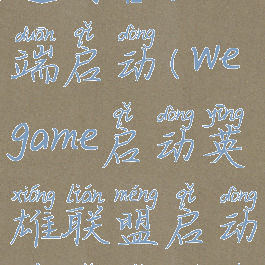 duān qǐ dòng
端启动(we
qǐ dòng yīng
game启动英
xióng lián méng qǐ dòng
雄联盟启动